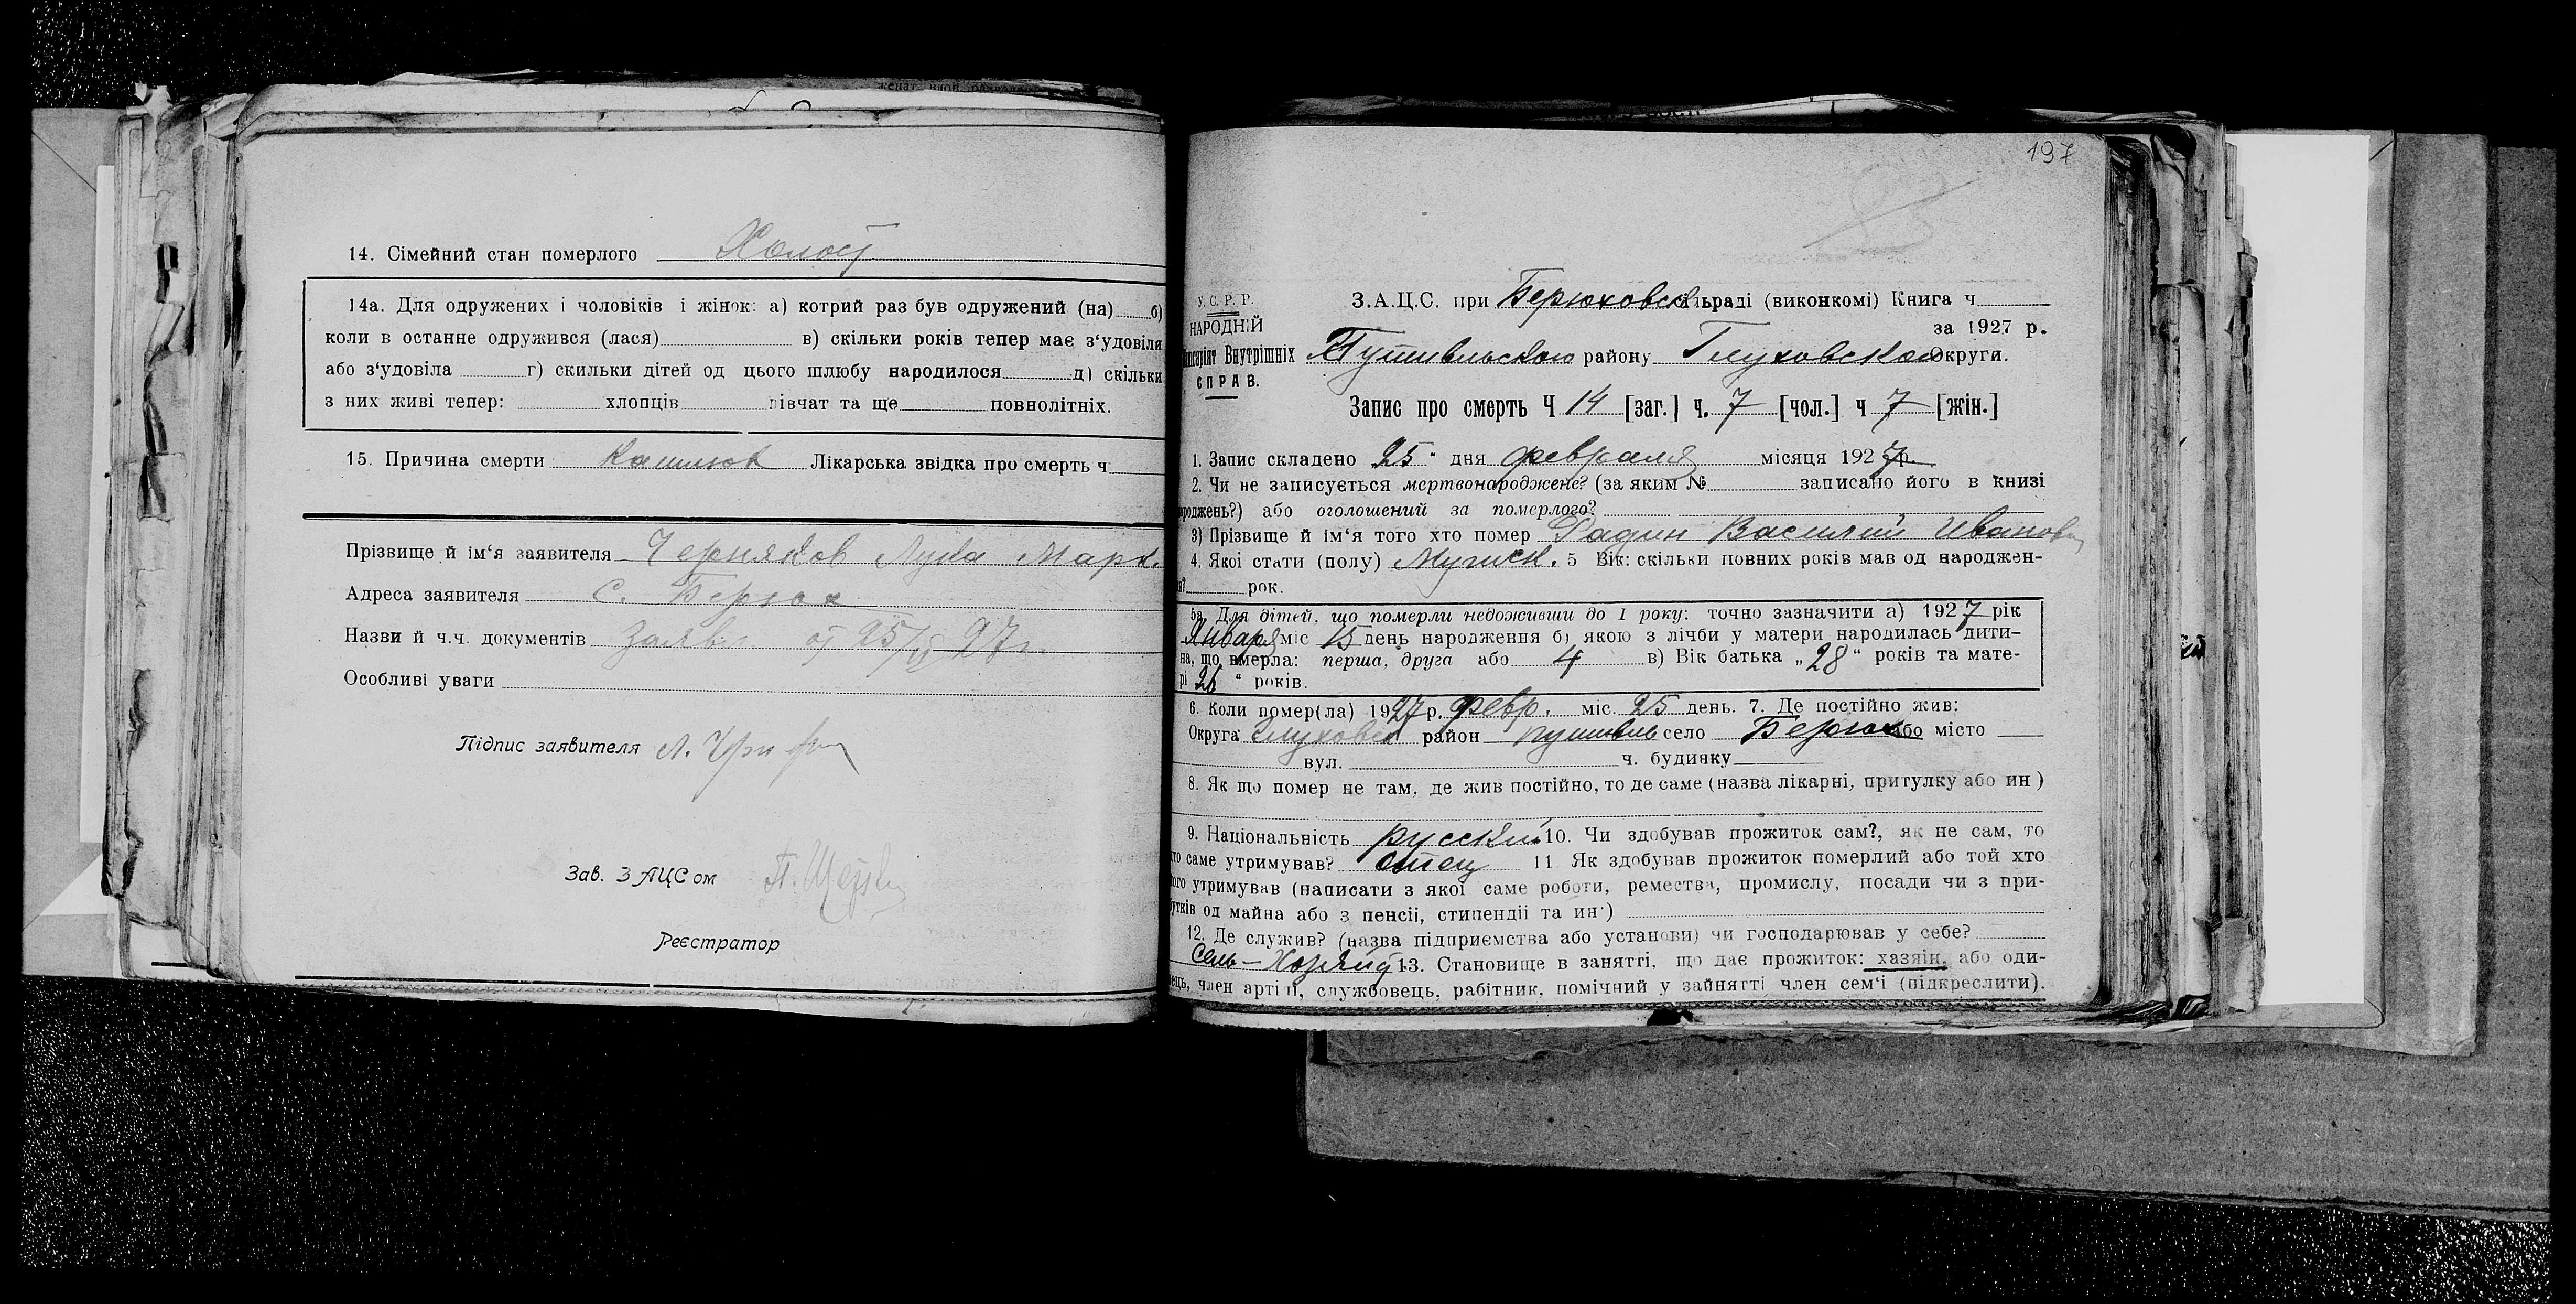 14. Сімейний стан померлого Холост
14а. Для одружених і чоловіків і жінок: а) котрий раз був одружений (на) б)
коли в останне одружився (лася) в) скільки років тепер має з‘удовіла
або з‘удовіла г) скильки дітей од цього шлюбу народилося д) скільки
з них живі тепер: хлопців дівчат та ще повнолітніх.
15. Причина смерти Лікарська звідка про смерть ч
Прізвище й ім‘я заявителя Черняков Лука Марк.
Адреса заявителя с. Берюх
Назви й ч.ч. документів Заявл. от 25/II 27 г.
Особливі уваги
Підпис заявителя Л.
Зав. ЗАЦСом П.
Реєстратор
197
У.С.Р.Р.
НАРОДНІЙ
Комісаріят Внутрішніх
СПРАВ.
З.А.Ц.С. при Берюховск сільраді (виконкомі) Книга ч
за 1927 р.
Путивльского району Глуховской Округи.
Запис про смерть Ч 14 [заг.] ч. 7 [чол.] ч 7 [жін.]
1. Запис складено 25 дня февраля місяця 1927 р.
2. Чи не записується мертвонароджене? (за яким № записано його в книзі
народжень?) або оголошений за померлого?
3) Прізвище й ім‘я того хто помер Фадин Василий Иванов
4. Якої стати (полу) Мужск. 5 Вік: скільки повних років мав од народжен-
ня? рок.
5а. Для дітей, що померли недоживши до 1 року: точно зазначити а) 1927 рік
Января міс 15 день народження б) якою з лічби у матери народилась дити-
на, що вмерла: перша, друга або 4 в) Вік батька „28“ років та мате-
рі 26 “ років.
6. Коли помер(ла) 1927 р. февр. міс. 25 день. 7. Де постійно жив:
Округа Глуховск район Путивль село Берюх або місто
вул. ч. будинку
8. Як що помер не там, де жив постійно, то де саме (назва лікарні, притулку або ин )
9. Національність русский 10. Чи здобував прожиток сам?, як не сам, то
хто саме утримував? отец 11 Як здобував прожиток померлий або той хто
його утримував (написати з якої саме роботи, ремества, промислу, посади чи з при-
бутків од майна або з пенсії, стипендії та ин·)
12. Де служив? (назва підприємства або установи) чи господарював у себе?
Сель-Хозяйст 13. Становище в заняттi, що дає прожиток: хазяін, або оди-
нець, член артілі, службовець, рабітник, помічний у зайнятті член сем‘ї (підкреслити).